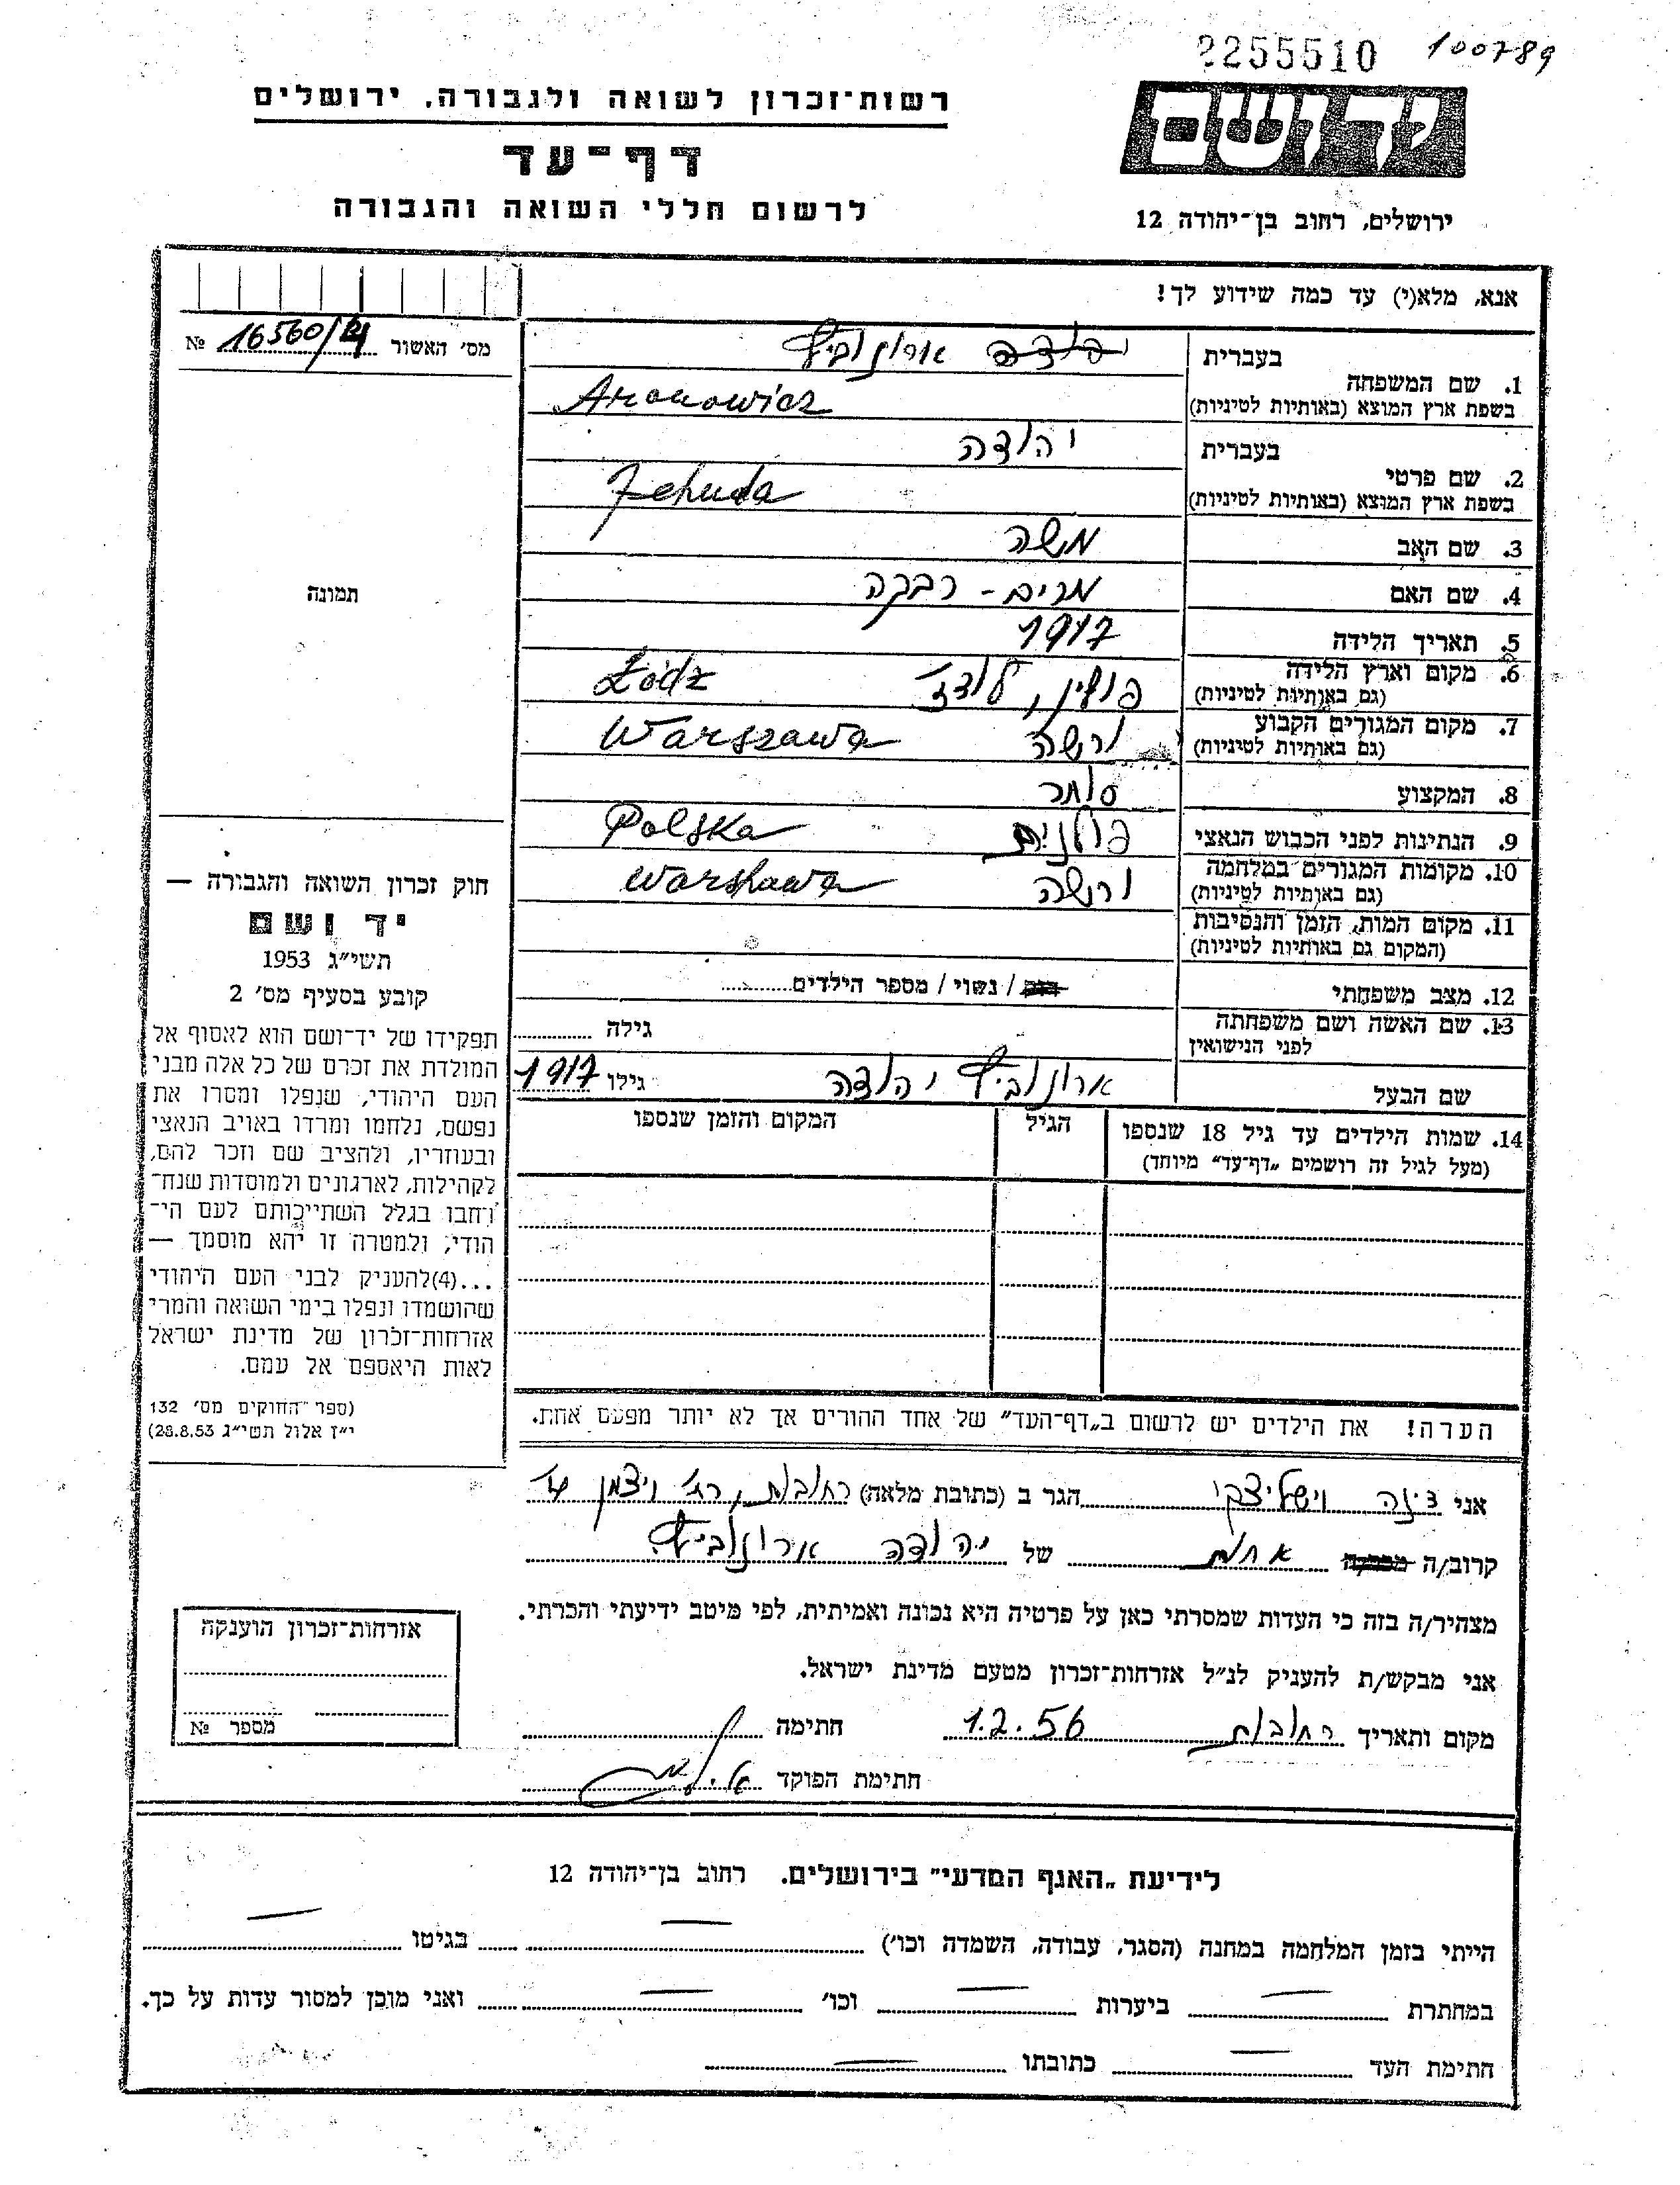 2255510 100789
יד ושם
ירושלים, רחוב בן־יהודה 12
רשות־זכרון לשואה ולגבורה, ירושלים
דף־עד
לרשום חללי השואה והגבורה
אנא, מלא(י) עד כמה שידוע לך!
מס׳ האשור № 16560/
1. שם המשפחה
בעברית יהודה ארונוביץ
בשפת ארץ המוצא (באותיות לטיניות) Aronowicz
2. שם פרטי
בעברית יהודה
בשפת ארץ המוצא (באותיות לטיניות) Jehuda
3. שם האב משה
4. שם האם מרים - רבקה
5. תאריך הלידה 1917
6. מקום וארץ הלידה (גם באותיות לטיניות) פולין, לודז׳ Łódz
7. מקום המגורים הקבוע (גם באותיות לטיניות) ורשה Warszawa
8. המקצוע סוחר
9. הנתינות לפני הכבוש הנאצי פולנית Polska
10. מקומות המגורים במלחמה (גם באותיות לטיניות) ורשה Warshawa
11. מקום המות, הזמן והנסיבות (המקום גם באותיות לטיניות)
12. מצב משפחתי רווק / נשוי / מספר הילדים
13. שם האשה ושם משפחתה לפני הנישואין גילה
שם הבעל ארונוביץ יהודה גילו 1917
14. שמות הילדים עד גיל 18 שנספו הגיל המקום והזמן שנספו
(מעל לגיל זה רושמים „דף־עד״ מיוחד)
הערה! את הילדים יש לרשום ב„דף־העד״ של אחד ההורים אך לא יותר מפעם אחת.
תמונה
חוק זכרון השואה והגבורה —
יד ושם
תשי״ג 1953
קובע בסעיף מס׳ 2
תפקידו של יד־ושם הוא לאסוף אל
המולדת את זכרם של כל אלה מבני
העם היהודי, שנפלו ומסרו את
נפשם, נלחמו ומרדו באויב הנאצי
ובעוזריו, ולהציב שם וזכר להם,
לקהילות, לארגונים ולמוסדות שנח־
רחבו בגלל השתייכותם לעם הי־
הודי; ולמטרה זו יהא מוסמך —
...(4)להעניק לבני העם היהודי
שהושמדו ונפלו בימי השואה והמרי
אזרחות־זכרון של מדינת ישראל
לאות היאספם אל עמם.
(ספר החוקים מס׳ 132
י״ז אלול תשי״ג 28.8.53)
אני דינה וישליצקי הגר ב (כתובת מלאה) רחובות, רח׳ ויצמן
קרוב/ה מכר/ה אחות של יהודה ארונוביץ
מצהיר/ה בזה כי העדות שמסרתי כאן על פרטיה היא נכונה ואמיתית, לפי מיטב ידיעתי והכרתי.
אני מבקש/ת להעניק לנ״ל אזרחות־זכרון מטעם מדינת ישראל.
מקום ותאריך רחובות 1.2.56 חתימה
חתימת הפוקד
אזרחות־זכרון הוענקה
מספר №
לידיעת „האגף המדעי״ בירושלים. רחוב בן־יהודה 12
הייתי בזמן המלחמה במחנה (הסגר, עבודה, השמדה וכו׳) — בגיטו —
במחתרת — ביערות — וכו׳ — ואני מוכן למסור עדות על כך.
חתימת העד — כתובתו —